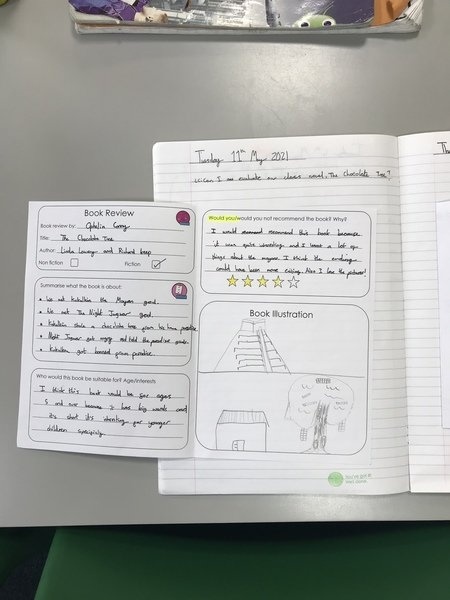 Tuesday 11th May 2021
I can evaluate our class novel, The Chocolate Tree?
Book Review
Book review by: Ophelia
Title: The Chocolate Tree
Author: Linda Lowery and Richard Keep
Non fiction
Fiction
Summarise what the book is about:
We met Kukulkan the Mayan god.
We met The Night Jaguar god.
Kukulkan stole a chocolate tree from his home paradise.
Night Jaguar got angry and told the paradise gods.
Kukulkan got banned from paradise.
Who would this book be suitable for? Age/interests
I think this book would be for ages
5 and over because it has big words and
it's short it's for younger
children
Would you/would you not recommend the book? Why?
I would recommend this book because
it was quite interesting and I learnt a lot of
things about the mayans. I think the ending
could have been more exiting. Also I love the pictures!
Book Illustration
You've got it!
Well done.